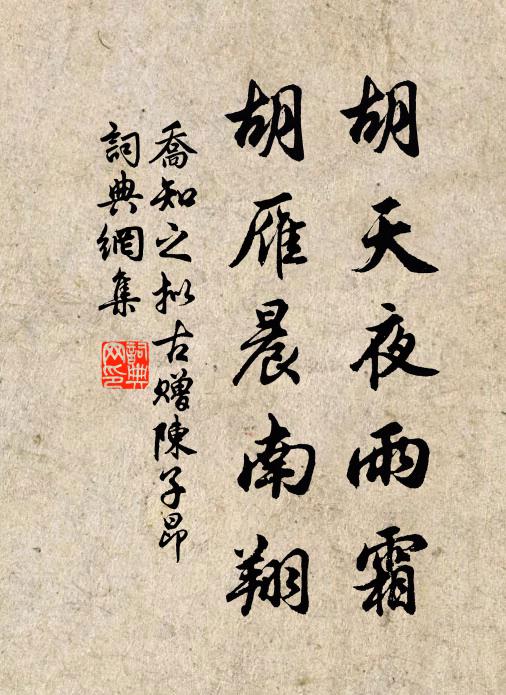 胡天夜雨霜
胡雁晨南翔
喬知之拟古赠陳子昂
詞典網集
詞典
网印